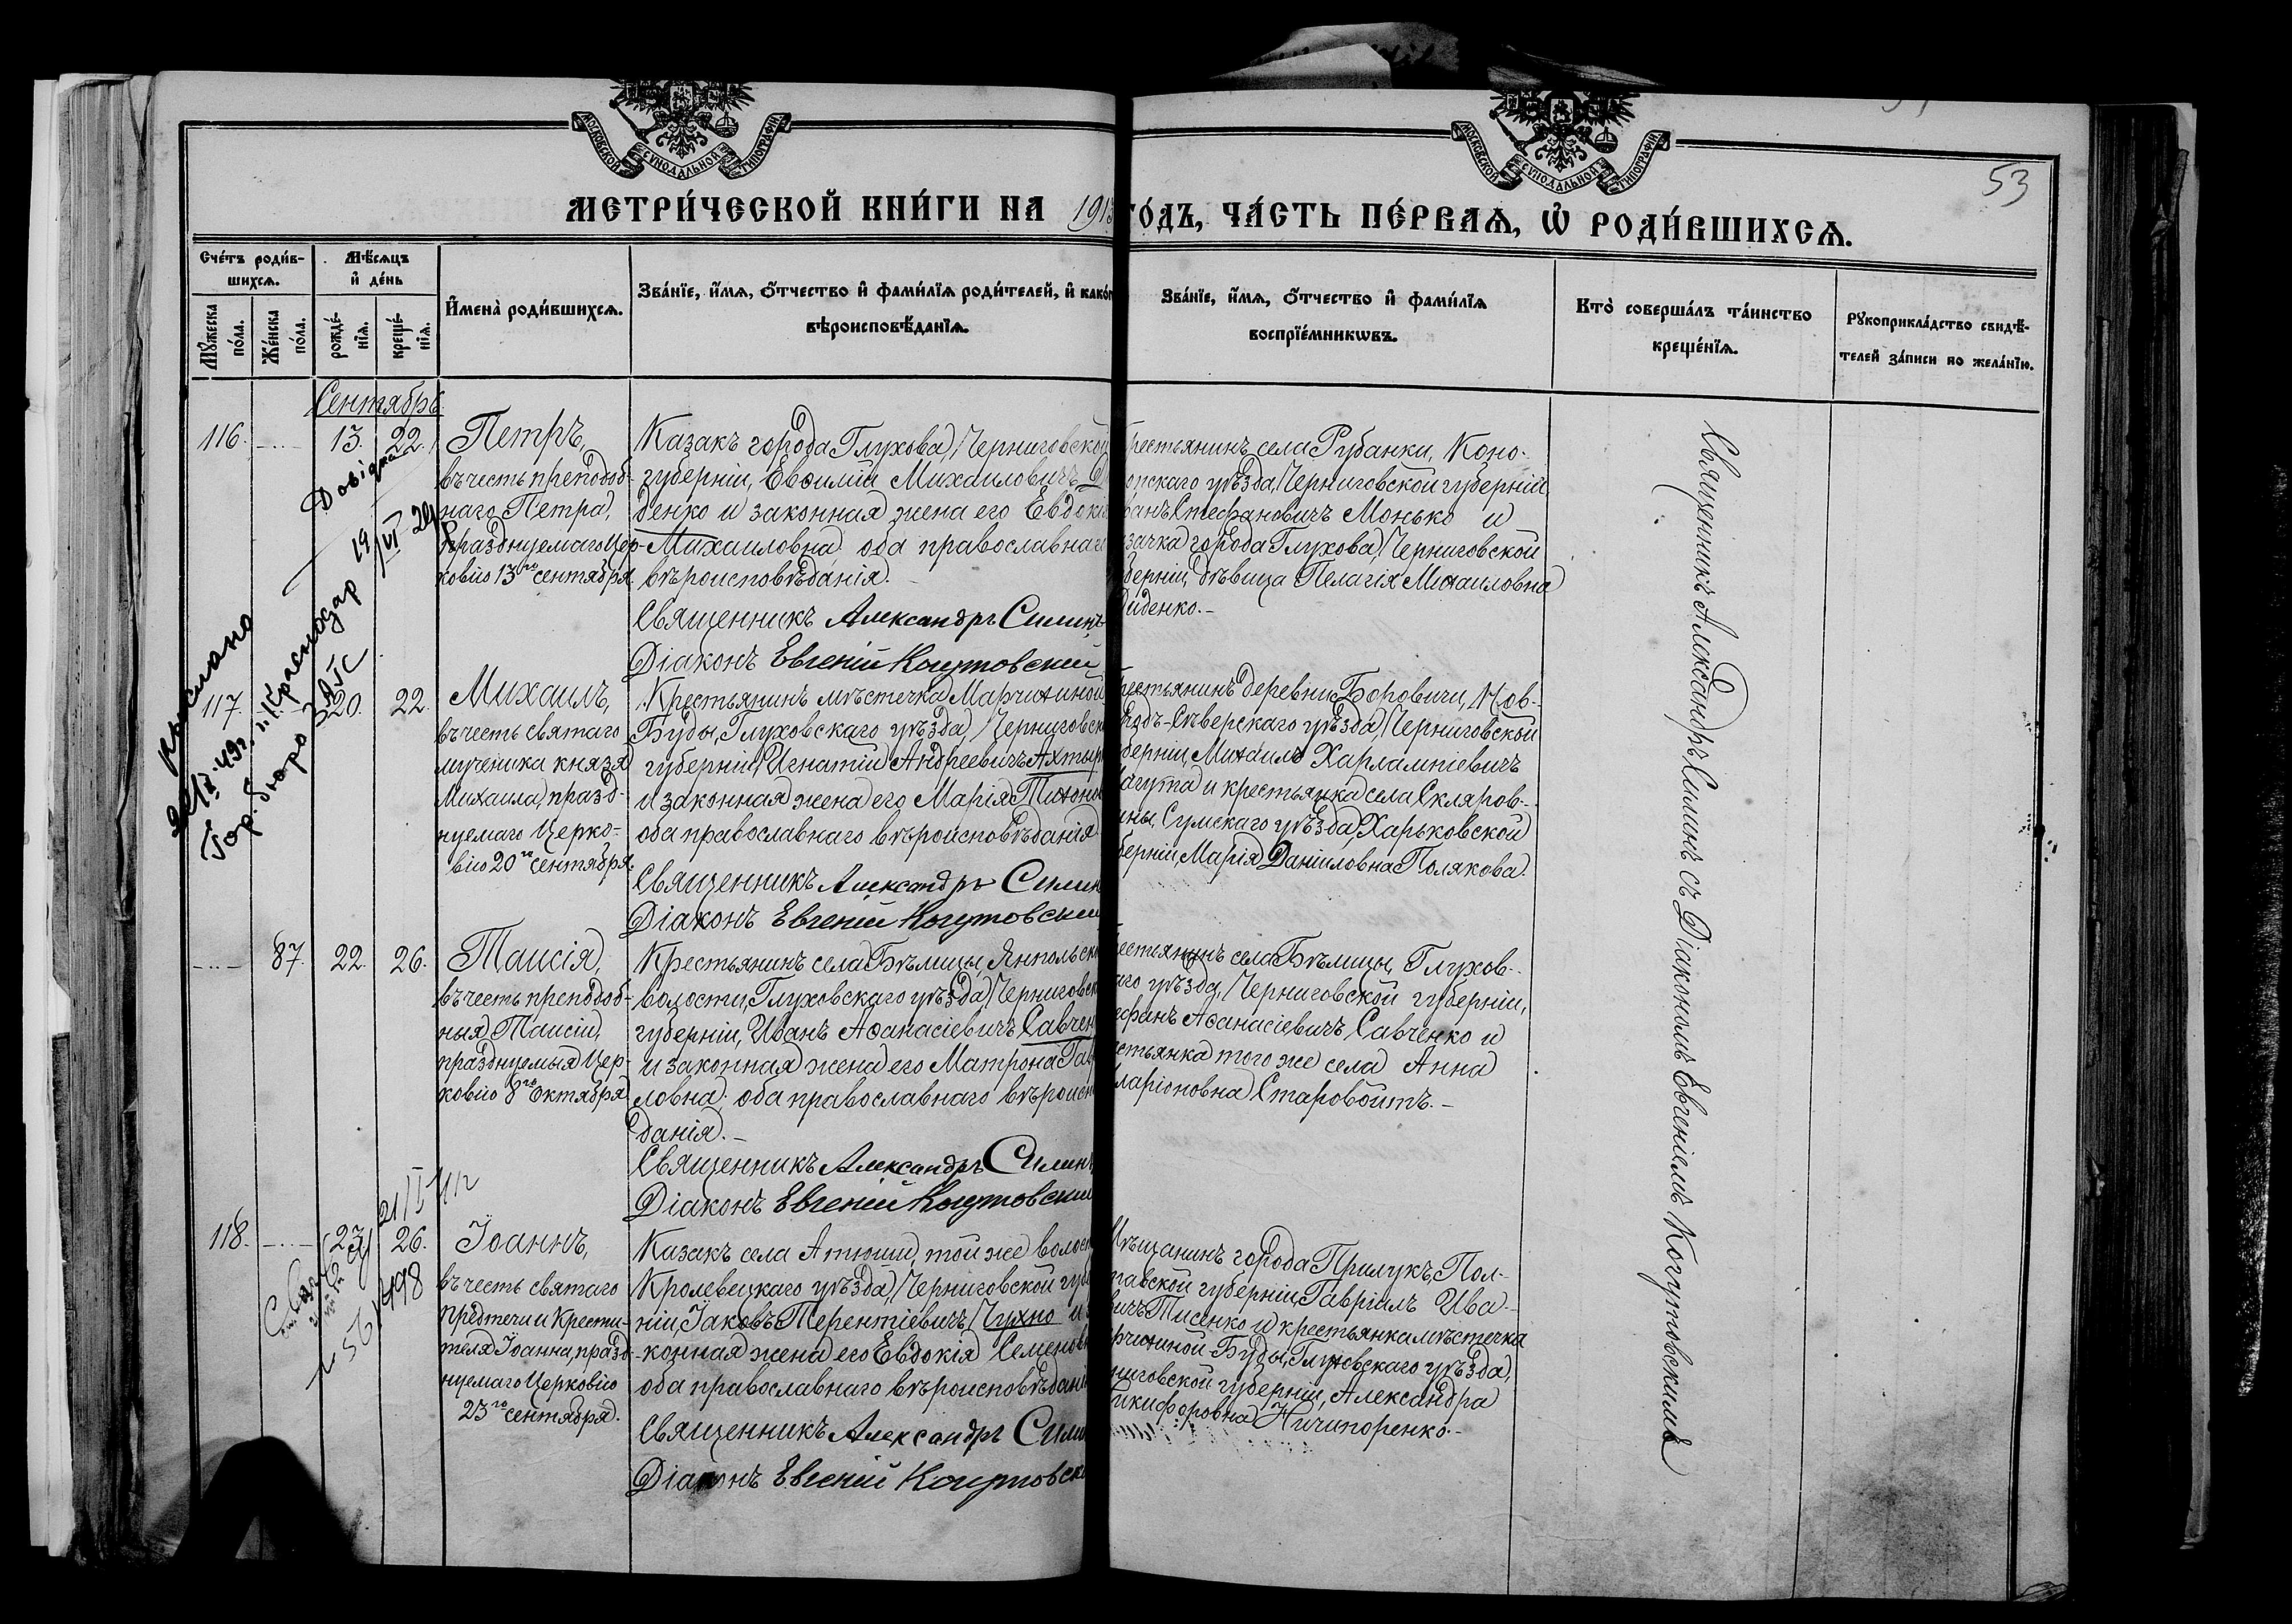 МОСКОВСКОЙ СѴНОДАЛЬНОЙ ТИПОГРАФІИ
МОСКОВСКОЙ СѴНОДАЛЬНОЙ ТИПОГРАФІИ
53
МЕТРИ́ЧЕСКОЙ КНИ́ГИ НА 1913
ГО́ДЪ, ЧА́СТЬ ПЕ́РВАѦ, Ѡ РОДИ́ВШИХСѦ.
Сче́тъ роди́в-
шихсѧ.
Мꙋ́жеска по́ла.
Же́нска по́ла.
Мѣ́сѧцъ
и де́нь
рожде́-
нїѧ.
креще́-
нїѧ.
Имена̀ роди́вшихсѧ.
Зва́нїе, и́мѧ, о́тчество и фами́лїѧ роди́телей, и како́г
вѣроисповѣ́данїѧ.
Зва́нїе, и́мѧ, о́тчество и фами́лїѧ
воспрїе́мникѡвъ.
Кто̀ соверша́лъ та́инство
креще́нїѧ.
Рꙋкоприкла́дство свидѣ́-
телей за́писи по жела́нїю.
Сентябрь
116. 13. 22.
Петръ,
въ честь преподоб-
наго Петра,
празднуемаго Цер-
ковію 13го сентября.
Казакъ города Глухова, Черниговской
губерніи, Евѳимій Михаиловичъ
денко и законная жена его Евдокія
Михаиловна оба православнаго
вѣроисповѣданія.
Священникъ Александръ Силинъ
Діаконъ Евгеній Когутовскій
рестьянинъ села Рубанки, Коно-
опскаго уѣзда, Черниговской губерніи,
Стефановичъ Монько и
зачка города Глухова, Черниговской
берніи, дѣвица Пелагія Михаиловна
Диденко.-
Священникъ Александръ Силинъ съ Діакономъ Евгеніемъ Когутовскимъ
Довідка
19/VI 29
выслано
43г. г. Краснодар
Гор. бюро ЗАГС
117. 20. 22.
Михаилъ,
въ честь святаго
мученика князя
Михаила, празд-
нуемаго Церко-
вію 20го сентября.
Крестьянинъ мѣстечка Марчихиной
Буды, Глуховскаго уѣзда, Черниговск
губерніи, Игнатій Андреевичъ Ахтыр
и законная жена его Марія Тихоно
оба православнаго вѣроисповѣданія
Священникъ Александръ Силин
Діаконъ Евгеній Когутовскій
рестьянинъ деревни Боровичи, Нов-
родъ-Сѣверскаго уѣзда, Черниговской
берніи, Михаилъ Харлампіевичъ
агута и крестьянка села Скляров-
ины, Сумскаго уѣзда, Харьковской
берніи, Марія Даніиловна Полякова.
87. 22. 26.
Таисія,
въ честь преподоб-
ныя Таисіи,
празднуемыя Цер-
ковію 8го октября
Крестьянинъ села Бѣлицы, Янпольск
волости, Глуховскаго уѣзда, Черниговск
губерніи, Иванъ Аѳанасіевичъ Савчен
и законная жена его Матрона Гав
ловна; оба православнаго вѣроисп
данія.-
Священникъ Александръ Силинъ
Діаконъ Евгеній Когутовскій
естьянинъ села Бѣлицы, Глухов-
аго уѣзда, Черниговской губерніи,
ефанъ Аѳанасіевичъ Савченко и
естьянка того же села Анна
ларіоновна Старовойтъ.-
118. 23. 26.
21/I
561498
Іоаннъ,
въ честь святаго
Предтечи и Крести-
теля Іоанна, празд-
нуемаго Церковію
23го сентября.
Казакъ села Атюши, той же волост
Кролевецкаго уѣзда, Черниговской губе
ніи, Іаковъ Терентіевичъ Чухно и
конная жена его Евдокія Семенов
оба православнаго вѣроисповѣдан
Священникъ Александръ Сили
Діаконъ Евгеній Когутовск
Мѣщанинъ города Прилукъ, Пол-
тавской губерніи, Гавріилъ Ива-
вичъ Тисенко и крестьянка мѣстечка
рчихиной Буды, Глуховскаго уѣзда,
ниговской губерніи, Александра
Никифоровна Ничипоренко.-